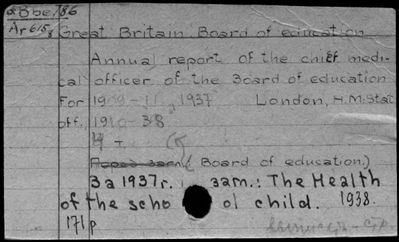 Bbe 786
Ar 615
Great Britain Board of education
Annual report of the chief medi-
cal officer of the Board of education
For 1909-11, 1937 London, H.M. Stat.
off. 1910-38
( Board of education.)
За 1937г. зат.: The Health
of the scho ol child. 1938.
171p